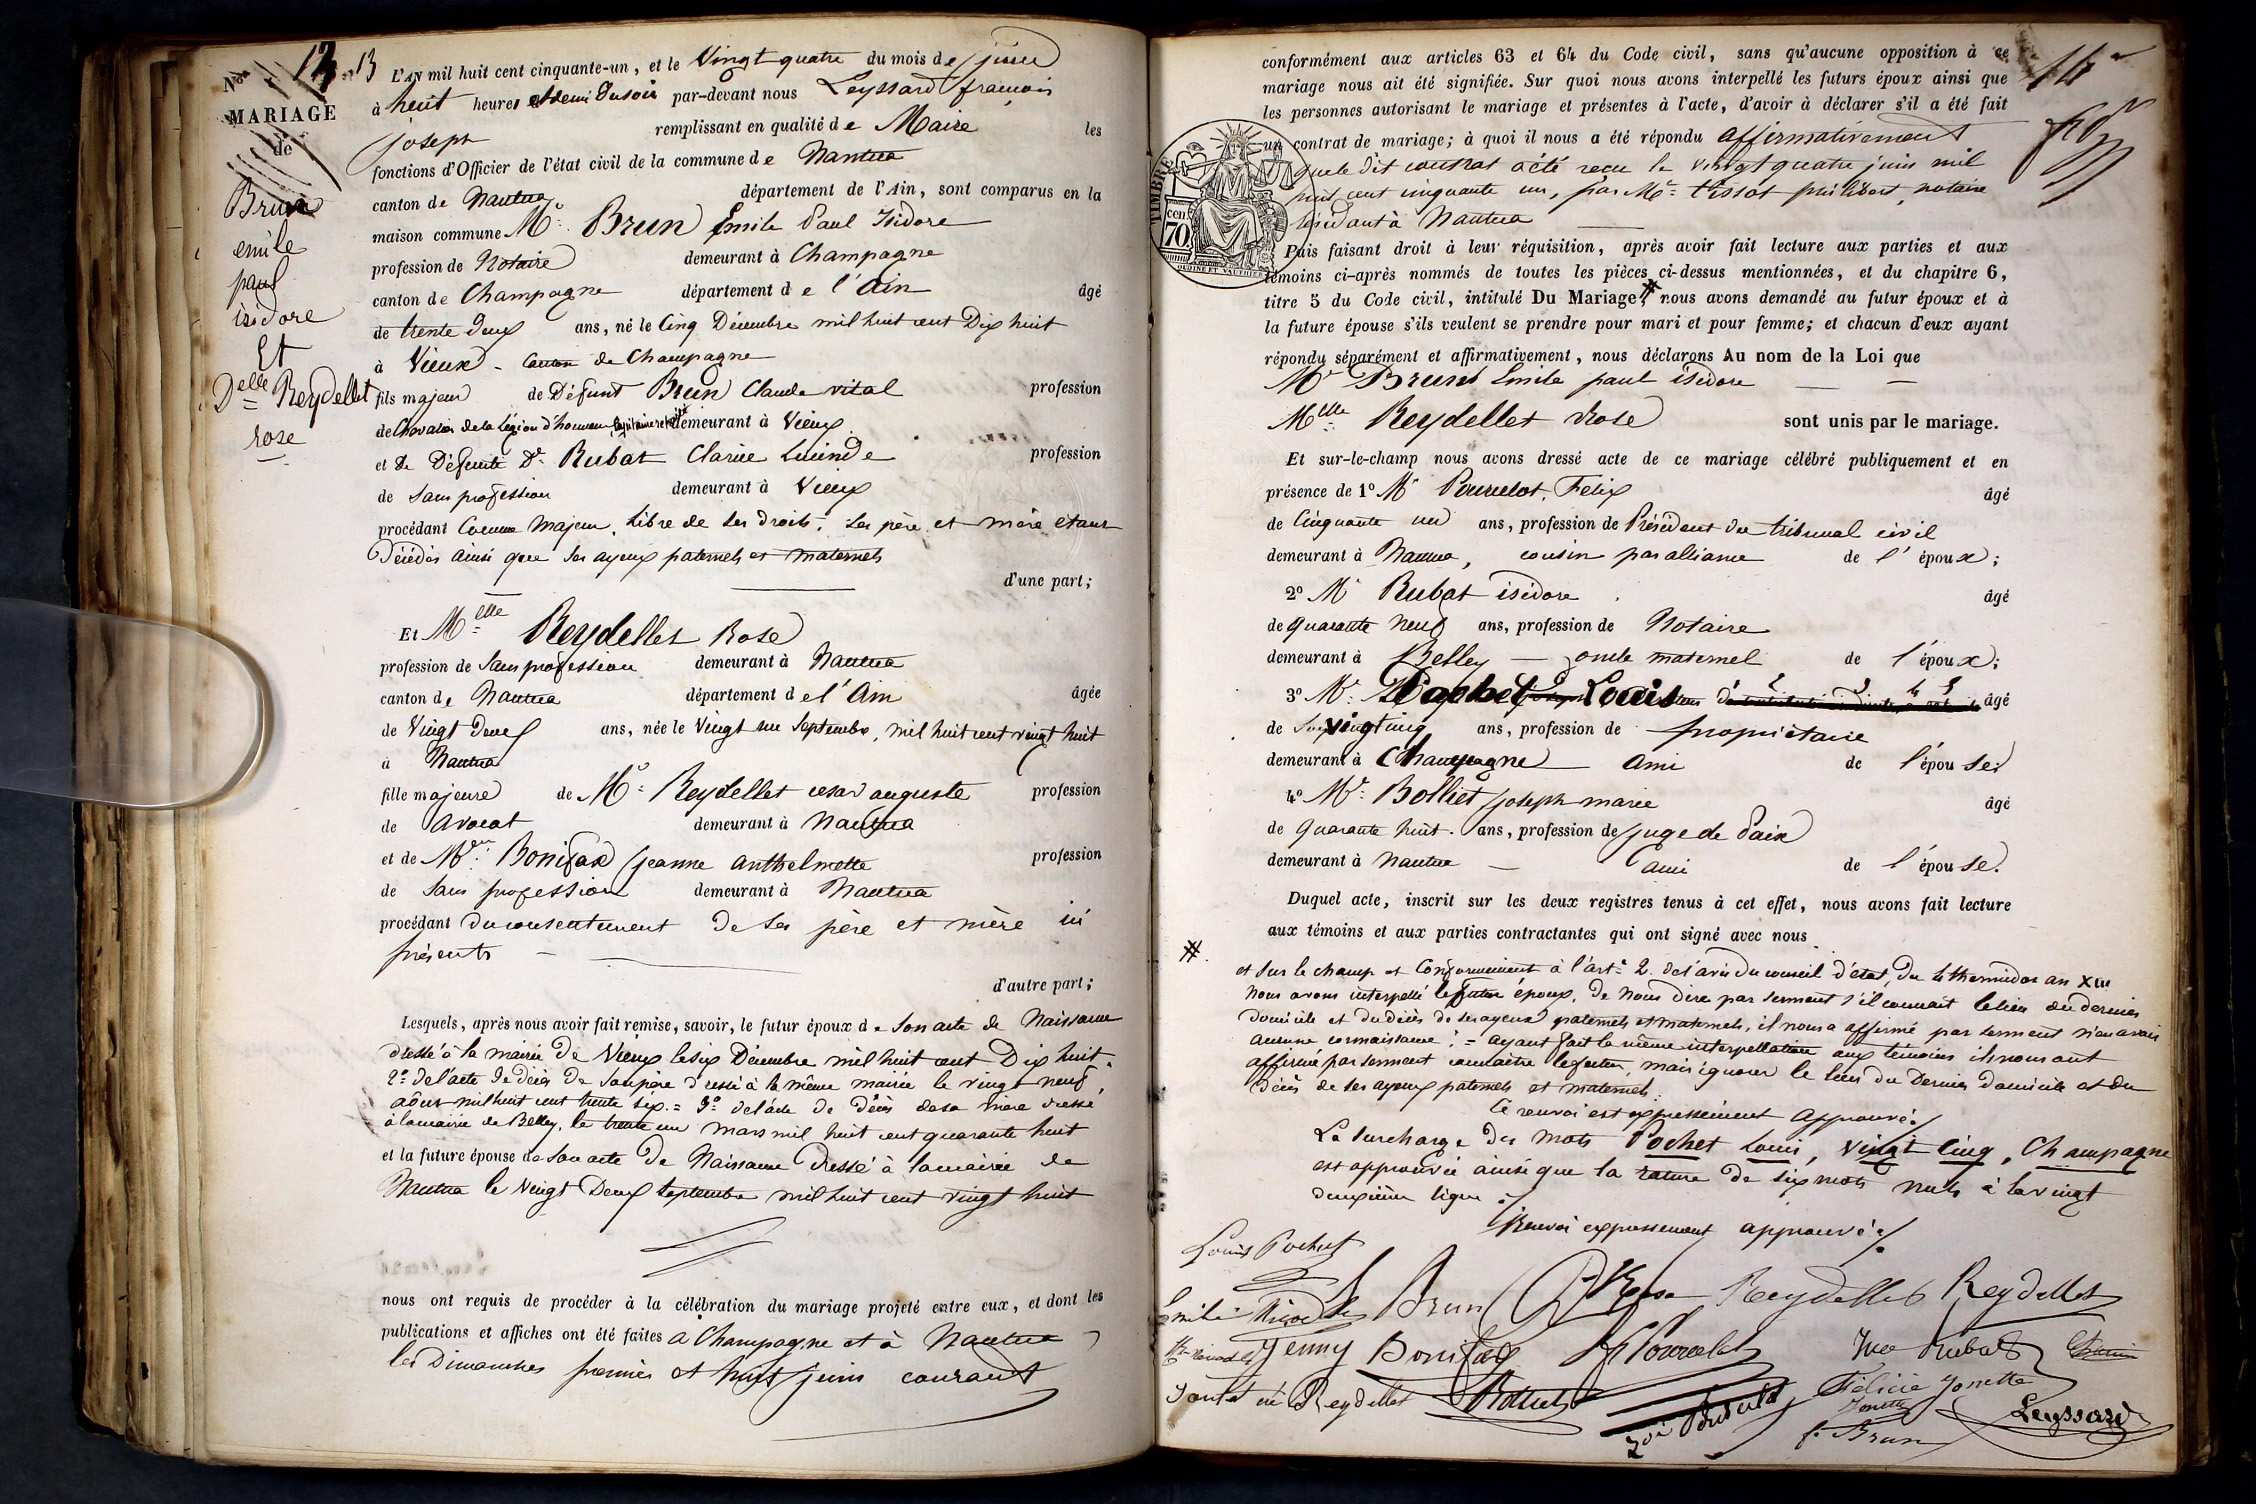 Nos 12 13
MARIAGE
de
Brun
emile
paul
isidore
Et
Delle Reydellet
rose
L'AN mil huit cent cinquante-un, et le Vingt quatre du mois de juin
à huit heures et demi du soir par-devant nous Leyssard françois
joseph remplissant en qualité de Maire les
fonctions d'Officier de l'état civil de la commune de Nantua
canton de Nantua département de l'Ain, sont comparus en la
maison commune Mr Brun Emile Paul Isidore
profession de Notaire demeurant à Champagne
canton de Champagne département de l'Ain âgé
de trente deux ans, né le Cinq Décembre mil huit cent Dix huit
à Vieux - Canton de Champagne
fils majeur de Défunt Brun Claude vital profession
de Chevalier de la Légion d'honneur, Capitaine retraité demeurant à Vieux
et de Défunte De Rubat Clarice Lucinde profession
de Sans profession demeurant à Vieux
procédant Comme Majeur, libre de ses droits, ses père et mère étant
Décédés ainsi que ses ayeux paternels et maternels
d'une part;
Et Melle Reydellet Rose
profession de Sans profession demeurant à Nantua
canton de Nantua département de l'Ain âgée
de Vingt Deux ans, née le Vingt un Septembre, mil huit cent vingt huit
à Nantua
fille majeure de Mr Reydellet cesar auguste profession
de Avocat demeurant à Nantua
et de Me Bonifax jeanne anthelmette profession
de Sans profession demeurant à Nantua
procédant du consentement de ses père et mère ici
présents
d'autre part;
Lesquels, après nous avoir fait remise, savoir, le futur époux de Son acte de Naissance
dressé à la mairie de Vieux le six Décembre mil huit cent Dix huit
2o de l'acte de décès de Son père dressé à la même mairie le vingt neuf
août mil huit cent trente six. = 3o de l'acte de Décès de sa mère dressé
à la mairie de Belley, le trente un Mars mil huit cent quarante huit
et la future épouse de Son acte De Naissance Dressé à la mairie de
Nantua le Vingt Deux Septembre mil huit cent vingt huit
nous ont requis de procéder à la célébration du mariage projeté entre eux, et dont les
publications et affiches ont été faites à Champagne et à Nantua
les Dimanches premier et huit juin courant
conformément aux articles 63 et 64 du Code civil, sans qu'aucune opposition à ce
mariage nous ait été signifiée. Sur quoi nous avons interpellé les futurs époux ainsi que
les personnes autorisant le mariage et présentes à l'acte, d'avoir à déclarer s'il a été fait
un contrat de mariage; à quoi il nous a été répondu affirmativement
que le dit contrat a été reçu le vingt quatre juin mil
huit cent cinquante un, par Me Tissot philibert, notaire
résidant à Nantua
TIMBRE
70 cen.
Puis faisant droit à leur réquisition, après avoir fait lecture aux parties et aux
témoins ci-après nommés de toutes les pièces ci-dessus mentionnées, et du chapitre 6,
titre 5 du Code civil, intitulé Du Mariage, # nous avons demandé au futur époux et à
la future épouse s'ils veulent se prendre pour mari et pour femme; et chacun d'eux ayant
répondu séparément et affirmativement, nous déclarons Au nom de la Loi que
Mr Brun Emile paul isidore
Melle Reydellet Rose sont unis par le mariage.
Et sur-le-champ nous avons dressé acte de ce mariage célébré publiquement et en
présence de 1o Mr Pourcelot, Felix âgé
de Cinquante un ans, profession de Président du tribunal civil
demeurant à Nantua, cousin par alliance de l'époux;
2o Mr Rubat isidore âgé
de quarante neuf ans, profession de Notaire
demeurant à Belley - oncle maternel de l'époux;
3o Mr Pochet Louis âgé
de vingt cinq ans, profession de propriétaire
demeurant à Champagne ami de l'épouse;
4o Mr Bolliet joseph marie âgé
de quarante huit ans, profession de juge de Paix
demeurant à Nantua - ami de l'épouse.
Duquel acte, inscrit sur les deux registres tenus à cet effet, nous avons fait lecture
aux témoins et aux parties contractantes qui ont signé avec nous
# et sur le champ et Conformément à l'art. 2 de l'avis du conseil d'état, du 4 thermidor an XIII
Nous avons interpellé le futur époux, de Nous dire par serment s'il connait le lieu du dernier
Domicile et du décès de ses ayeux paternels et maternels, il nous a affirmé par serment n'en avoir
aucune connaissance; = ayant fait la même interpellation aux témoins ils nous ont
affirmé par serment connaitre le futur, mais ignorer le lieu du Dernier domicile et du
Décès de ses ayeux paternels et maternels.
Ce renvoi est expressement approuvé./
La surcharge des mots Pochet Louis, Vingt Cinq, Champagne
est approuvée ainsi que la rature de six mots nuls à la vingt
deuxième ligne ./
Renvoi expressement approuvé./
Louis Pochet
Emile Isidore Brun Rose Reydellet Reydellet
Jenny Bonifax F Pourcelot Rubat
née Reydellet Bolliet Félicie Jonette
Leyssard
f. Brun